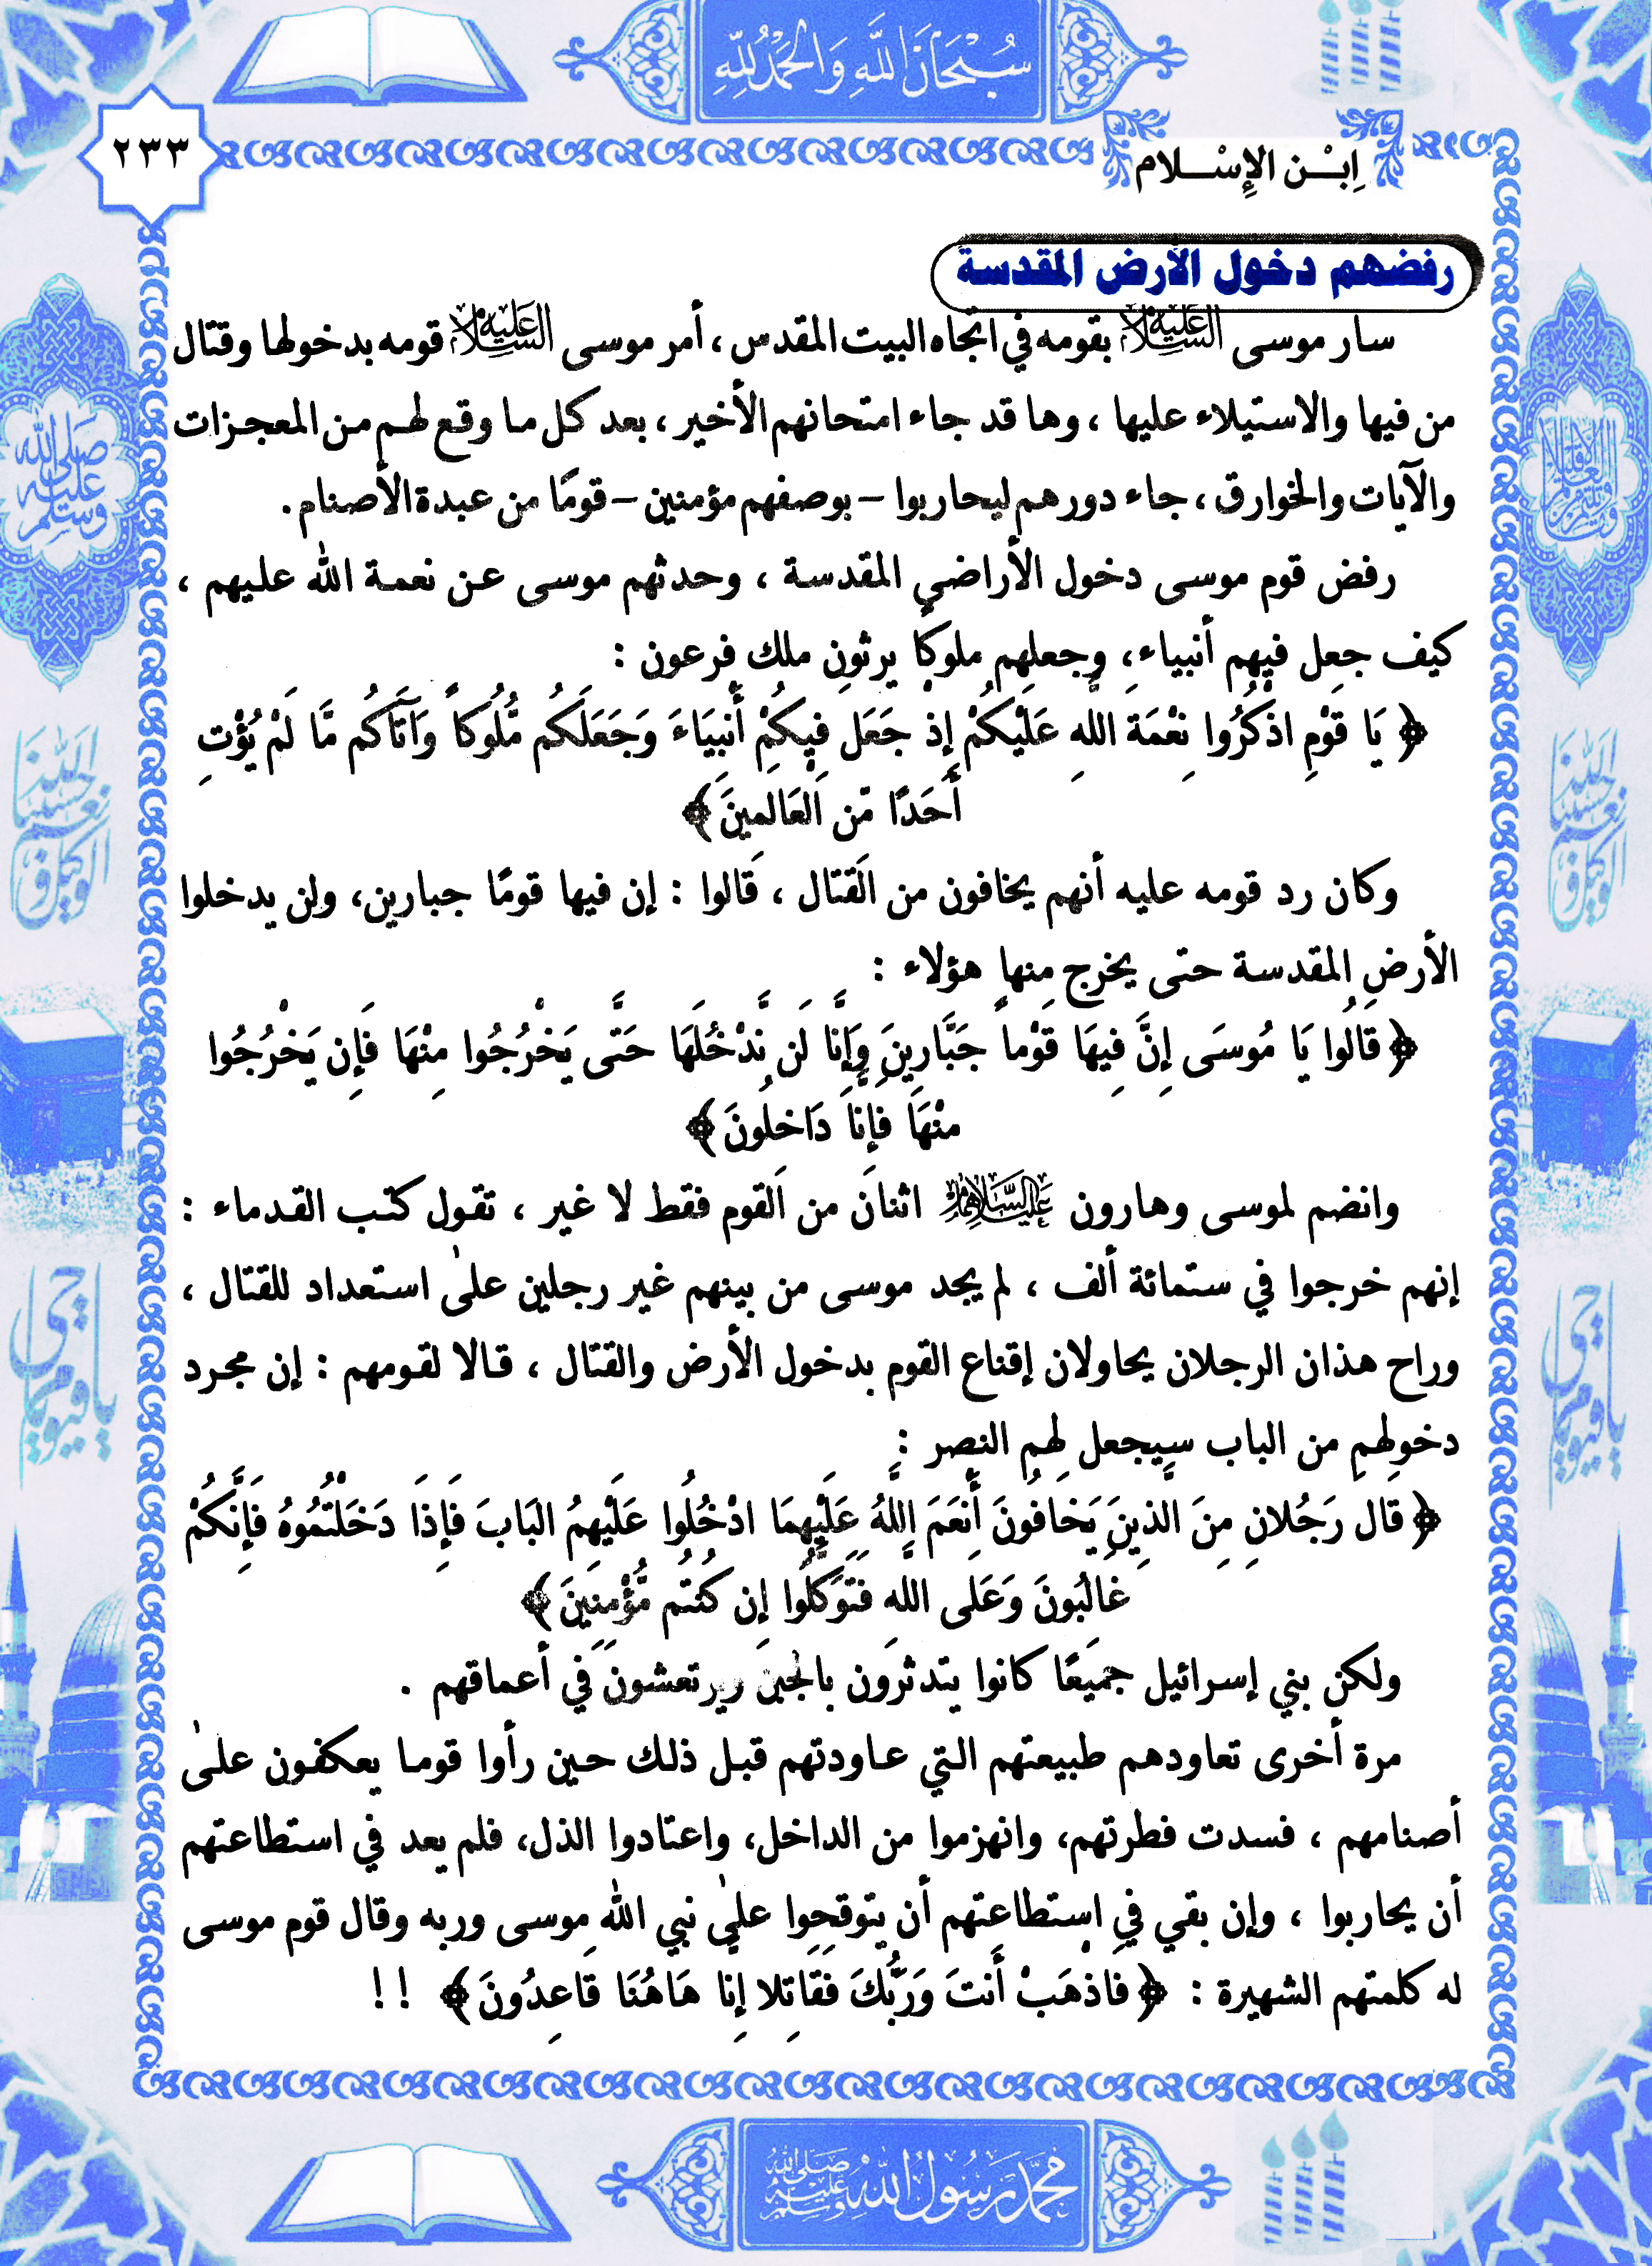 سُبْحَانَ اللَّهِ وَالْحَمْدُ لِلَّهِ
٢٣٣
اِبْـن الإِسْـلام
رفضهم دخول الأرض المقدسة
سار موسى عليه السلام بقومه في اتجاه البيت المقدس ، أمر موسى عليه السلام قومه بدخولها وقتال
من فيها والاستيلاء عليها ، وها قد جاء امتحانهم الأخير ، بعد كل ما وقع لهم من المعجزات
والآيات والخوارق ، جاء دورهم ليحاربوا – بوصفهم مؤمنين – قومًا من عبدة الأصنام .
رفض قوم موسى دخول الأراضي المقدسة ، وحدثهم موسى عن نعمة الله عليهم ،
كيف جعل فيهم أنبياء، وجعلهم ملوكًا يرثون ملك فرعون :
﴿ يَا قَوْمِ اذْكُرُوا نِعْمَةَ اللهِ عَلَيْكُمْ إِذ جَعَلَ فِيكُمْ أَنبِيَاءَ وَجَعَلَكُم مُّلُوكاً وَآتَاكُم مَّا لَمْ يُؤْتِ
أَحَدًا مِّن العَالمِينَ ﴾
وكان رد قومه عليه أنهم يخافون من القتال ، قالوا : إن فيها قومًا جبارين، ولن يدخلوا
الأرض المقدسة حتى يخرج منها هؤلاء :
﴿ قَالُوا يَا مُوسَى إِنَّ فِيهَا قَوْماً جَبَّارِينَ وَإِنَّا لَن نَّدْخُلَهَا حَتَّى يَخْرُجُوا مِنْهَا فَإِن يَخْرُجُوا
مِنْهَا فَإِنَّا دَاخِلُونَ ﴾
وانضم لموسى وهارون عليهما السلام اثنان من القوم فقط لا غير ، تقول كتب القدماء :
إنهم خرجوا في ستمائة ألف ، لم يجد موسى من بينهم غير رجلين على استعداد للقتال ،
وراح هذان الرجلان يحاولان إقناع القوم بدخول الأرض والقتال ، قالا لقومهم : إن مجرد
دخولهم من الباب سيجعل لهم النصر :
﴿ قَالَ رَجُلانِ مِنَ الَّذِينَ يَخَافُونَ أَنْعَمَ اللَّهُ عَلَيْهِمَا ادْخُلُوا عَلَيْهِمُ البَابَ فَإِذَا دَخَلْتُمُوهُ فَإِنَّكُمْ
غَالِبُونَ وَعَلَى اللهِ فَتَوَكَّلُوا إِن كُنتُم مُّؤْمِنِينَ ﴾
ولكن بني إسرائيل جميعًا كانوا يتدثرون بالجبن ويرتعشون في أعماقهم .
مرة أخرى تعاودهم طبيعتهم التي عاودتهم قبل ذلك حين رأوا قوما يعكفون على
أصنامهم ، فسدت فطرتهم، وانهزموا من الداخل، واعتادوا الذل، فلم يعد في استطاعتهم
أن يحاربوا ، وإن بقي في استطاعتهم أن يتوقحوا على نبي الله موسى وربه وقال قوم موسى
له كلمتهم الشهيرة : ﴿ فَاذْهَبْ أَنتَ وَرَبُّكَ فَقَاتِلا إِنَّا هَاهُنَا قَاعِدُونَ ﴾ !!
صلى الله عليه وسلم
حسبنا الله ونعم الوكيل
حسبنا الله ونعم الوكيل
يا حي يا قيوم
يا حي يا قيوم
محمد رسول الله صلى الله عليه وسلم